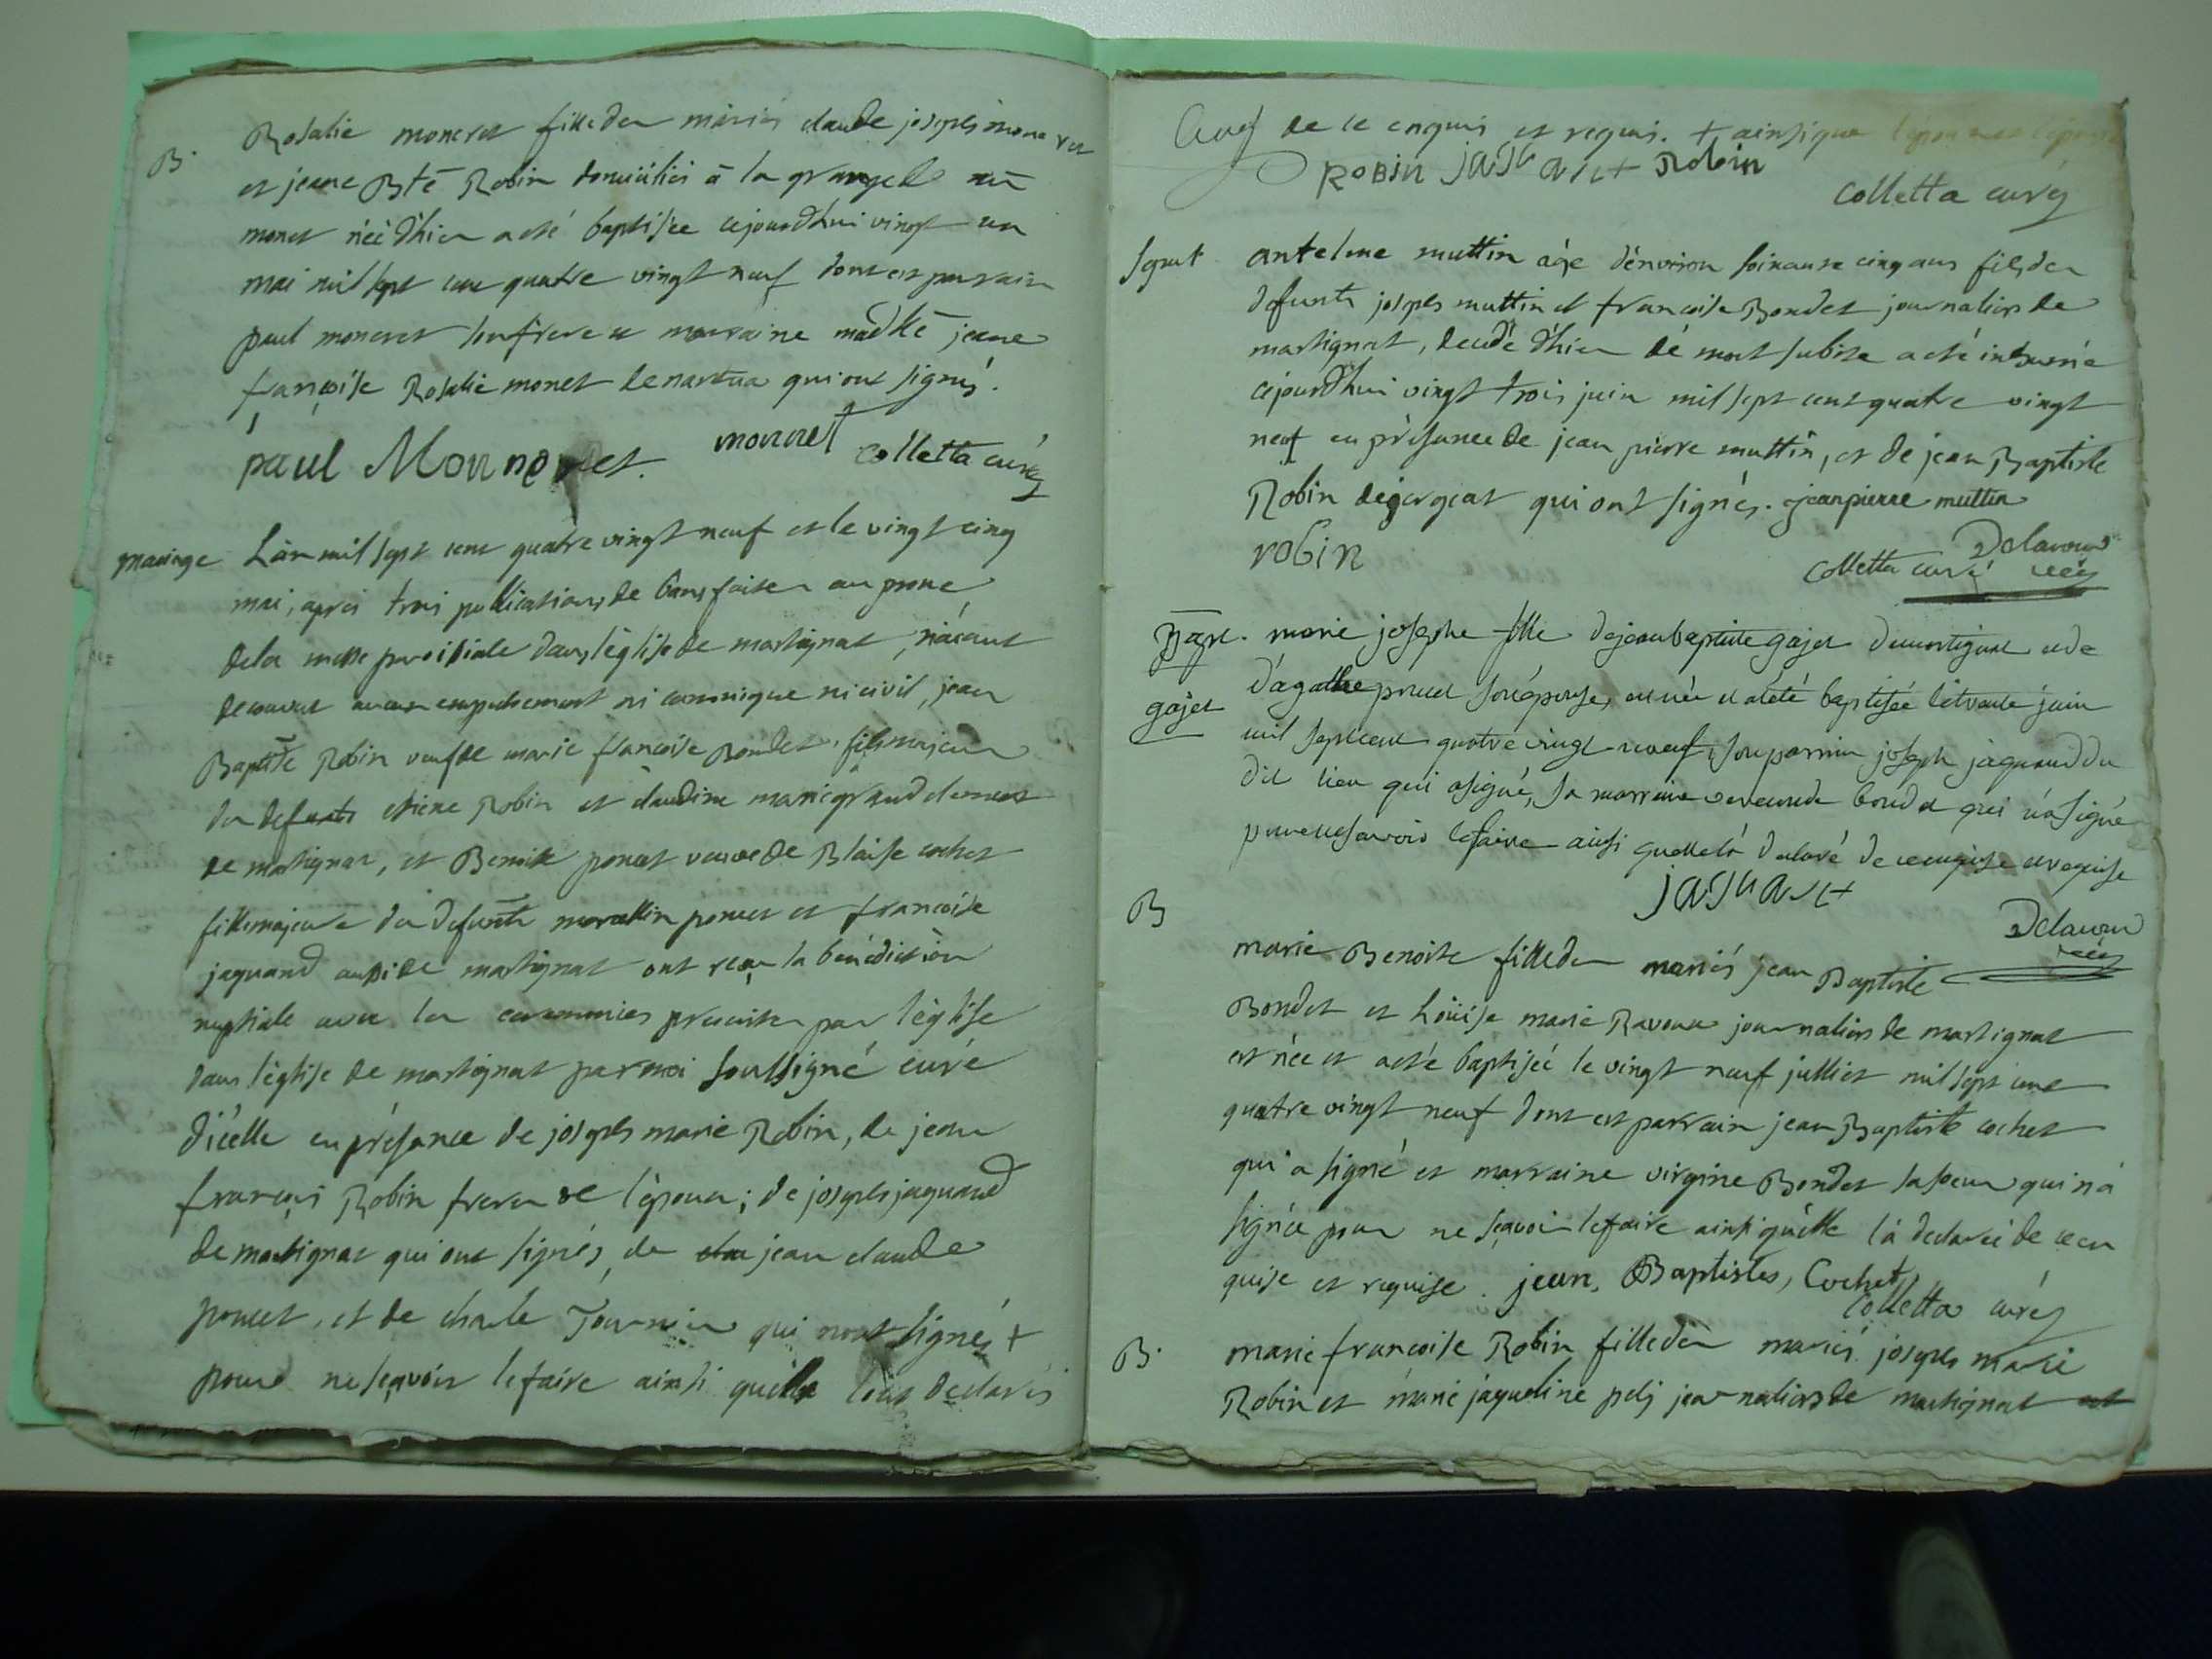 B. Rosalie moneret fille des mariés claude joseph moneret
et jeane Bte Robin domiciliés à la grange de
monet néé d'hier a eté baptisée cejourdhui vingt un
mai mil sept cent quatre vingt neuf dont est parrain
paul moneret son frere et marraine madlle jeane
francoise Rosalie monet de nantua qui ont signés.
paul Monneret. monnet colletta curé
mariage L'an mil sept cent quatre vingt neuf et le vingt cinq
mai, aprés trois publications de bans faites au prone
de la messe paroissiale dans l'église de martignat, n'aiant
decouvert aucun empechement ni canonique ni civil, jean
Baptiste Robin veuf de marie francoise Bondet, fils majeur
des defunts etiene Robin et claudine marie grand clement
de martignat, et Benoite poncet veuve de Blaise cochet
fille majeure des defunts poncet et francoise
jaquand aussi de martignat ont reçu la bénédiction
nuptiale avec les ceremonies prescrites par l'église
dans l'église de martignat par moi soussigné curé
d'icelle en présance de joseph marie Robin, de jean
françois Robin freres de l'époux; de joseph jaquand
de martignat qui ont signés, de jean claude
poncet, et de charle Tournier qui n'ont signés +
pour ne sçavoir le faire ainsi quils l'ont declarés
de ce enquis et requis. + ainsi que l'épouse
RoBin jaquant Robin
colletta curé
antelme muttin agé d'environ soixante cinq ans fils des
defunts joseph muttin et francoise Bondet journaliers de
martignat, decedé d'hier de mort subite a eté inhumé
cejourdhui vingt trois juin mil sept cent quatre vingt
neuf en présance de jean pierre muttin, et de jean Baptiste
Robin de gergeat qui ont signés. jean pierre muttin
robin colletta curé
Bapt. marie josephe fille de jean baptiste gajet de martignat et de
gajet d'agathe poncet son épouse, est née et a été baptisée le trente juin
mil sept cent quatre vingt neuf, son parrain joseph jaquand du
dit lieu qui a signé, sa marraine bondet qui n'a signé
pour ne savoir le faire ainsi quelle l'a déclaré de ce enquise et requise
jaquant
B marie Benoite fille des mariés jean Baptiste
Bondet et Loüise marie Ravoux journaliers de martignat
est née et a eté baptiséé le vingt neuf julliet mil sept cent
quatre vingt neuf dont est parrain jean Baptiste cochet
qui a signé et marraine virginie Bondet sa soeur qui n'a
signée pour ne sçavoir le faire ainsi qu'elle l'a declarée de ce en
quise et requise. jean, Baptistes, Cochet
colletta curé
B. marie francoise Robin fille des mariés joseph marie
Robin et marie jaqueline journaliers de martignat est